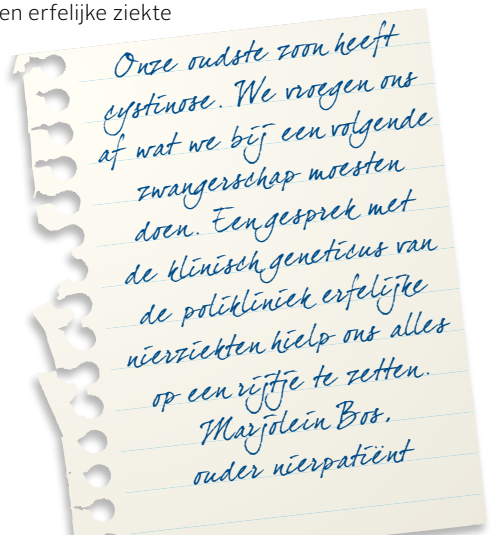 en erfelijke ziekte
Onze oudste zoon heeft
cystinose. We vroegen ons
af wat we bij een volgende
zwangerschap moesten
doen. Een gesprek met
de klinisch geneticus van
de polikliniek erfelijke
nierziekten hielp ons alles
op een rijtje te zetten.
Marjolein Bos,
ouder nierpatiënt